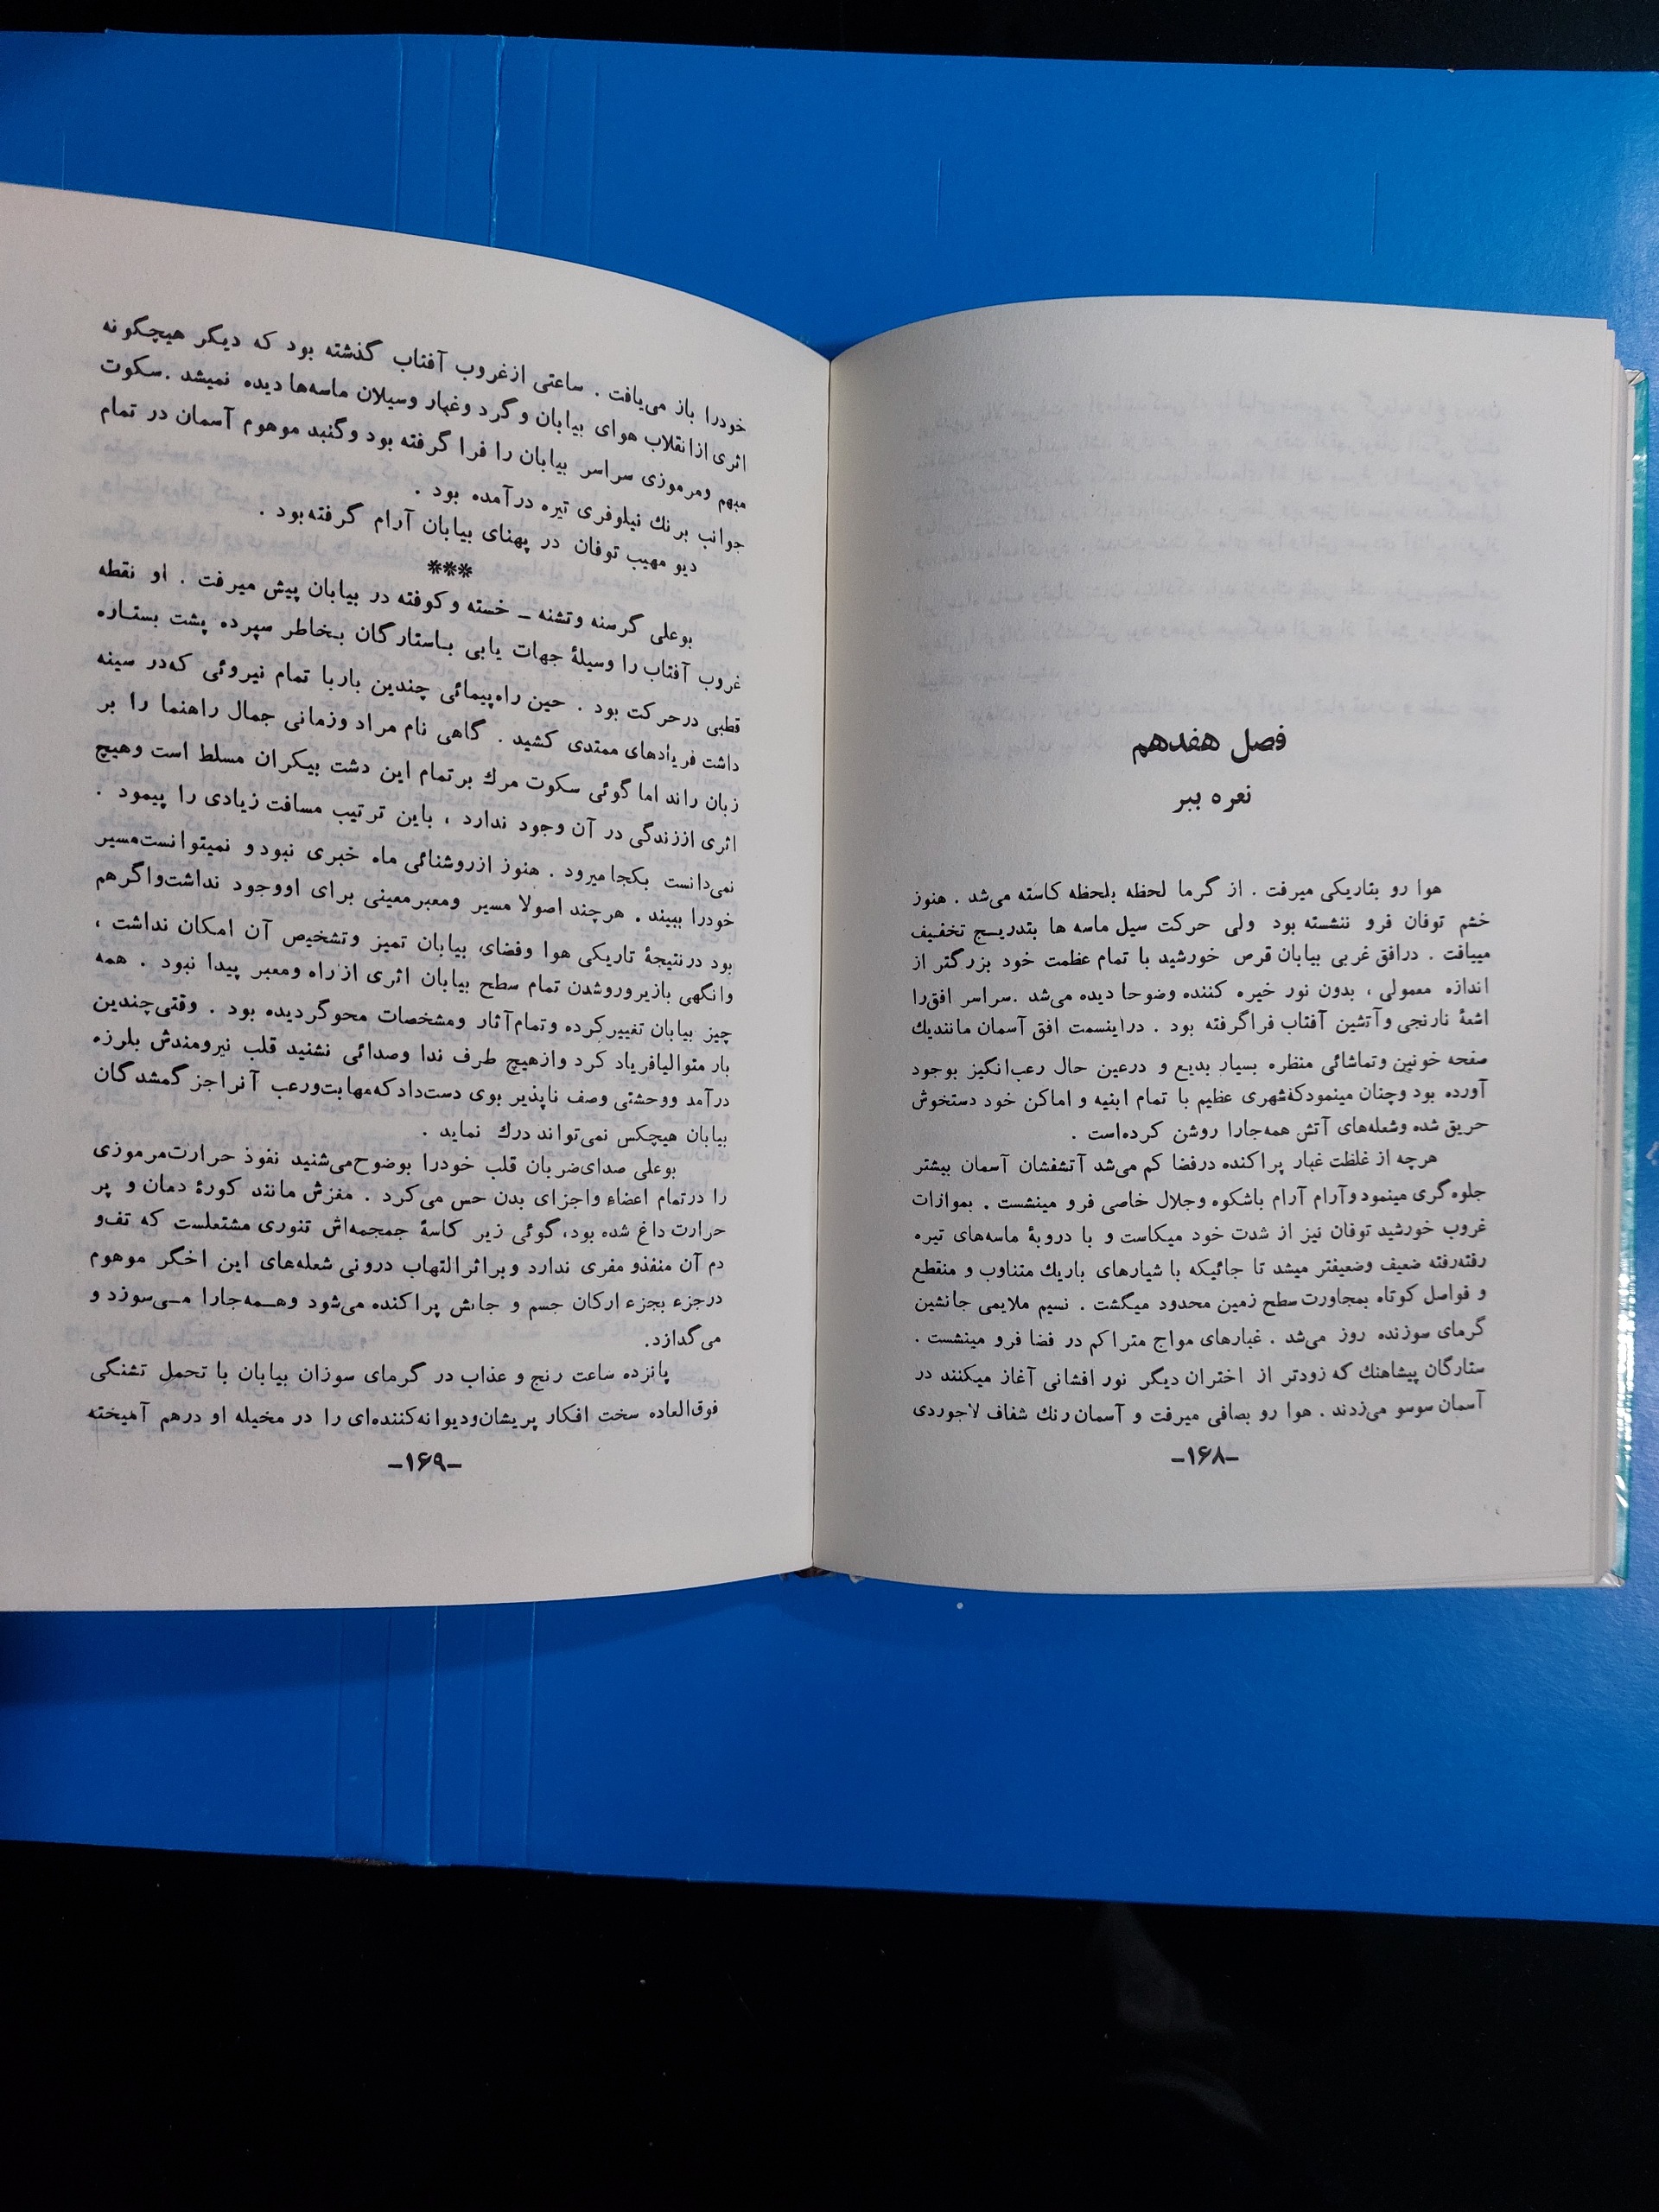 فصل هفدهم
نعره ببر
هوا رو بتاریکی میرفت . از گرما لحظه بلحظه کاسته می‌شد . هنوز
خشم توفان فرو ننشسته بود ولی حرکت سیل ماسه ها بتدریج تخفیف
مییافت . درافق غربی بیابان قرص خورشید با تمام عظمت خود بزرگتر از
اندازه معمولی ، بدون نور خیره کننده وضوحا دیده می‌شد .سراسر افق‌را
اشعهٔ نارنجی وآتشین آفتاب فراگرفته بود . دراینسمت افق آسمان مانندیك
صفحه خونین وتماشائی منظره بسیار بدیع و درعین حال رعب‌انگیز بوجود
آورده بود وچنان مینمودکه‌شهری عظیم با تمام ابنیه و اماکن خود دستخوش
حریق شده وشعله‌های آتش همه‌جارا روشن کرده‌است .
هرچه از غلظت غبار پراکنده درفضا کم می‌شد آتشفشان آسمان بیشتر
جلوه‌گری مینمود وآرام آرام باشکوه وجلال خاصی فرو مینشست . بموازات
غروب خورشید توفان نیز از شدت خود میکاست و با دروبهٔ ماسه‌های تیره
رفته‌رفته ضعیف وضعیفتر میشد تا جائیکه با شیارهای باریك متناوب و منقطع
و فواصل کوتاه بمجاورت سطح زمین محدود میگشت . نسیم ملایمی جانشین
گرمای سوزنده روز می‌شد . غبارهای مواج متراکم در فضا فرو مینشست .
ستارگان پیشاهنك که زودتر از اختران دیگر نور افشانی آغاز میکنند در
آسمان سوسو می‌زدند . هوا رو بصافی میرفت و آسمان رنك شفاف لاجوردی
-۱۶۸-
خودرا باز می‌یافت . ساعتی ازغروب آفتاب گذشته بود که دیگر هیچگونه
اثری ازانقلاب هوای بیابان وگرد وغبار وسیلان ماسه‌ها دیده نمیشد .سکوت
مبهم ومرموزی سراسر بیابان را فرا گرفته بود وگنبد موهوم آسمان در تمام
جوانب برنك نیلوفری تیره درآمده بود .
دیو مهیب توفان در پهنای بیابان آرام گرفته‌بود .
***
بوعلی گرسنه وتشنه ـ خسته وکوفته در بیابان پیش میرفت . او نقطه
غروب آفتاب را وسیلهٔ جهات یابی باستارگان بخاطر سپرده پشت بستاره
قطبی درحرکت بود . حین راه‌پیمائی چندین باربا تمام نیروئی که‌در سینه
داشت فریادهای ممتدی کشید . گاهی نام مراد وزمانی جمال راهنما را بر
زبان راند اما گوئی سکوت مرك برتمام این دشت بیکران مسلط است وهیچ
اثری اززندگی در آن وجود ندارد ، باین ترتیب مسافت زیادی را پیمود .
نمی‌دانست بکجا میرود . هنوز ازروشنائی ماه خبری نبود و نمیتوانست‌مسیر
خودرا ببیند . هرچند اصولا مسیر ومعبرمعینی برای اووجود نداشت‌واگرهم
بود درنتیجهٔ تاریکی هوا وفضای، بیابان تمیز وتشخیص آن امکان نداشت ،
وانگهی بازیروروشدن تمام سطح بیابان اثری ازراه ومعبر پیدا نبود . همه
چیز بیابان تغییرکرده وتمام‌آثار ومشخصات محوگردیده بود . وقتی‌چندین
بار متوالیافریاد کرد وازهیچ طرف ندا وصدائی نشنید قلب نیرومندش بلرزه
درآمد ووحشتی وصف ناپذیر بوی دست‌دادکه‌مهابت‌ورعب آنراجز گمشدگان
بیابان هیچکس نمی‌تواند درك نماید .
بوعلی صدای‌ضربان قلب خودرا بوضوح‌می‌شنید نفوذ حرارت‌مرموزی
را درتمام اعضاء واجزای بدن حس می‌کرد . مغزش مانند کورهٔ دمان و پر
حرارت داغ شده بود، گوئی زیر کاسهٔ جمجمه‌اش تنوری مشتعلست که تف‌و
دم آن منفذو مفری ندارد وبراثرالتهاب درونی شعله‌های این اخگر موهوم
درجزء بجزء ارکان جسم و جانش پراکنده می‌شود وهمه‌جارا می‌سوزد و
می‌گدازد.
پانزده ساعت رنج و عذاب در گرمای سوزان بیابان با تحمل تشنگی
فوق‌العاده سخت افکار پریشان‌ودیوانه‌کننده‌ای را در مخیله او درهم آمیخته
-۱۶۹-